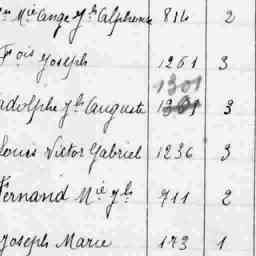 Mie Ange Jh Alphonse 816 2
Fois Joseph 1261 3
1301
adolphe Jh Auguste 3
Louis Victor Gabriel 1236 3
Fernand Mie Jh 711 2
Joseph Marie 173 1